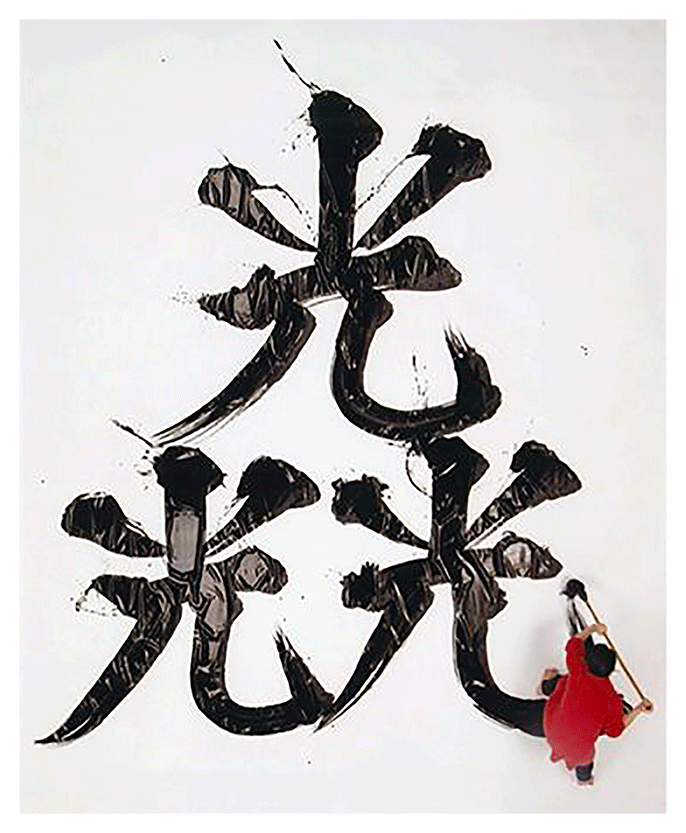 光
光光